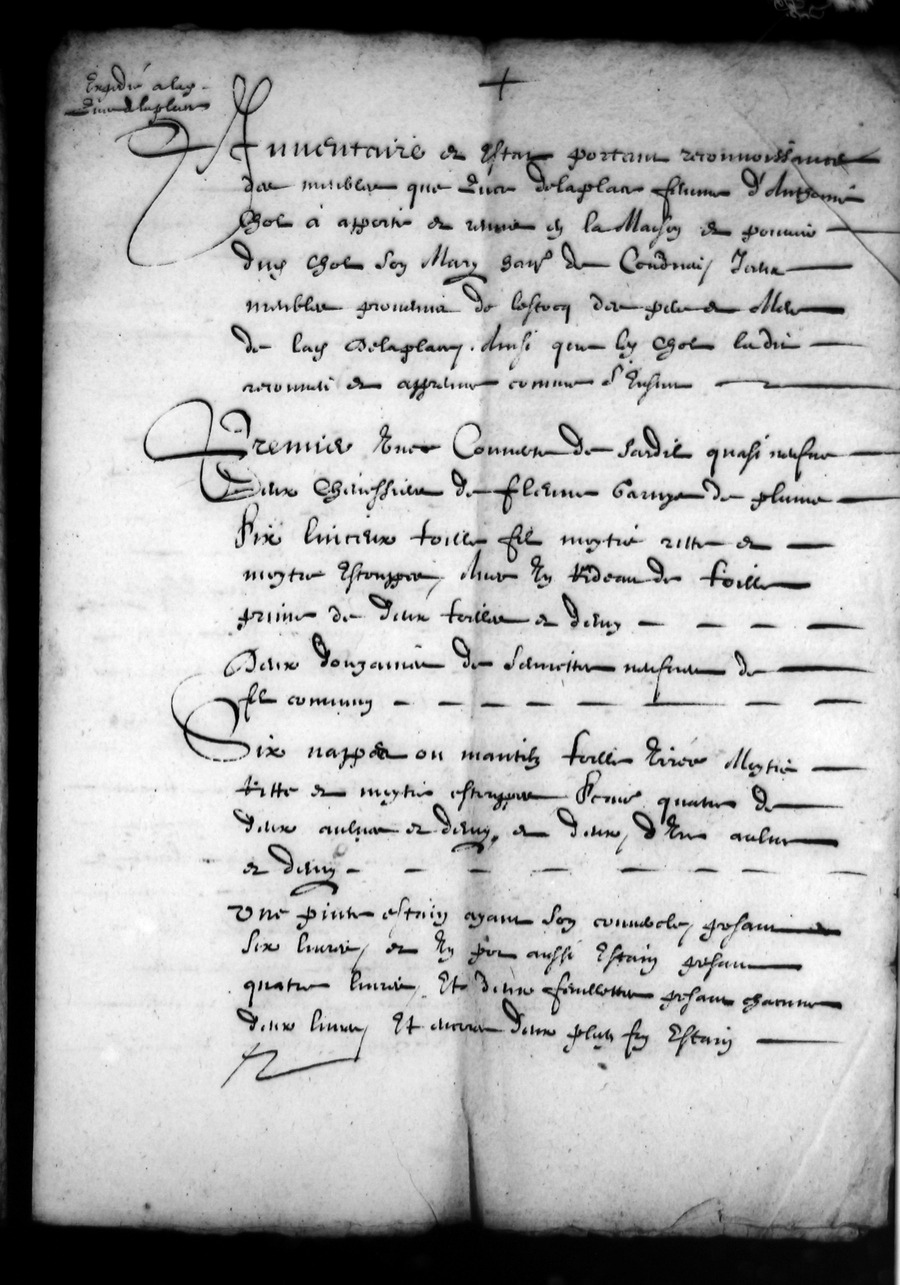 Expedié a lad
Inventaire et Estat portant reconnoissance
des meubles que delaplace femme d'Anthoine
Chol à apporté et remis en la Maison et pouvoir
dud Chol son Mary de Iceux
meubles provenus de des pere et Mere
de lad Delaplace, Ainsi que led Chol la dit
reconnu et comme s'Ensuit
Premier Une Couverte de quasi neufve
Deux de garnye de plume
Six linceux toille fil moytié ritte et
moytié Estouppes, Avec Un Rideau de toille
prime de deux toilles et demy
Deux douzaines de serviettes neufves de
fil commung
Six nappes ou mantilz toille Moytié
Ritte et moytié estouppes quatre de
deux aulnes et demy, et deux, d'Une aulne
et demy
Une pinte estain ayant son couvercle, pesant
six livres, et Un pot aussi Estain pesant
quatre livres, Et deux feuillettes pesant chacune
deux livres, Et encore deux plats fin Estain